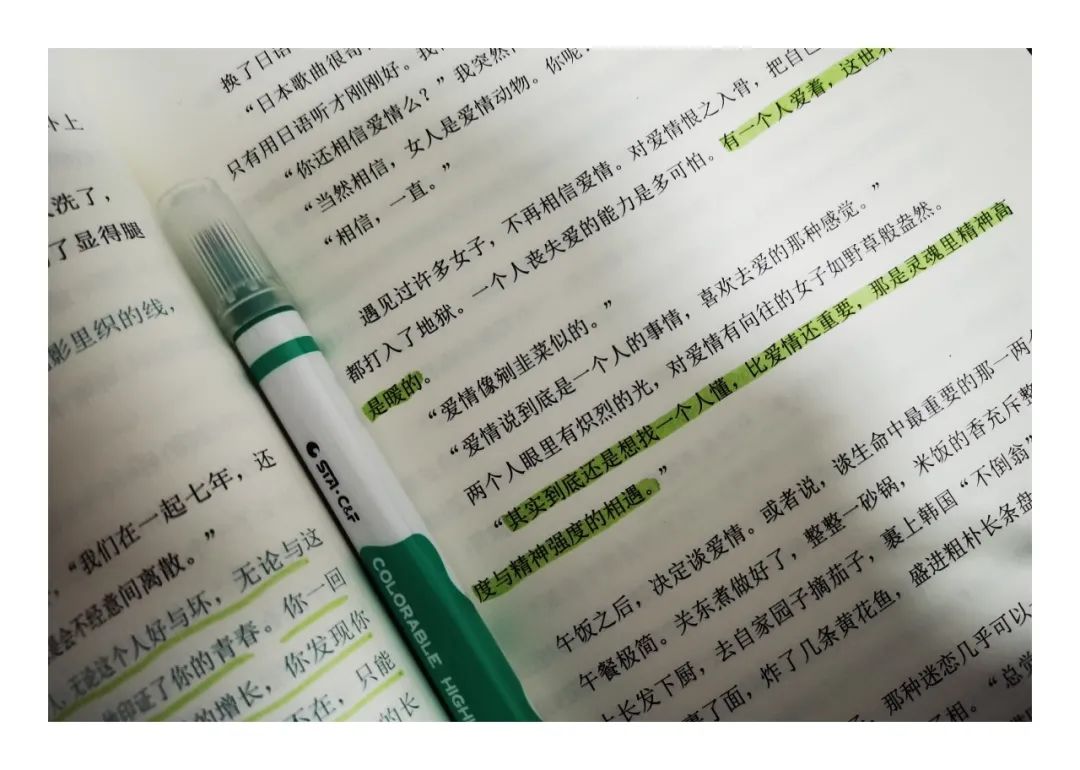 卜上
洗了，
了显得腿
影里织的线，
“我们在一起七年，还
会不经意间离散。”
无论这个人好与坏，无论与这
印证了你的青春。你一回
的增长，你发现你
不在，只能
的长
换了日语
“日本歌曲很奇
只有用日语听才刚刚好。我
“你还相信爱情么？”我突然
“当然相信，女人是爱情动物。你呢，
“相信，一直。”
遇见过许多女子，不再相信爱情。对爱情恨之入骨，把自己
都打入了地狱。一个人丧失爱的能力是多可怕。有一个人爱着，这世界
是暖的。
“爱情像剜韭菜似的。”
“爱情说到底是一个人的事情，喜欢去爱的那种感觉。”
两个人眼里有炽烈的光，对爱情有向往的女子如野草般盎然。
“其实到底还是想找一个人懂，比爱情还重要，那是灵魂里精神高
度与精神强度的相遇。”
午饭之后，决定谈爱情。或者说，谈生命中最重要的那一两个
午餐极简。关东煮做好了，整整一砂锅，米饭的香充斥整
长发下厨，去自家园子摘茄子，裹上韩国“不倒翁”
了面，炸了几条黄花鱼，盛进粗朴长条盘
，那种迷恋几乎可以
相。“总觉
STA·C&F
COLORABLE HIGH